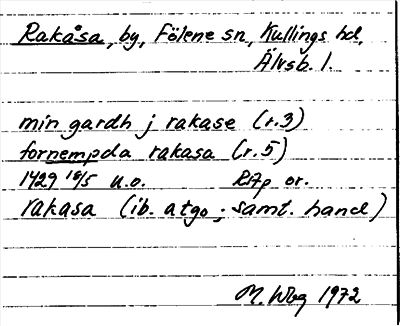 Rakåsa, by, Fölene sn, Kullings hd,
Älvsb. l.
min gardh j rakase (r.3)
fornempda rakasa (r.5)
1429 18/5 u.o. RAp or.
rakasa (ib. atgo; samt. hand)
M. Wbg 1972